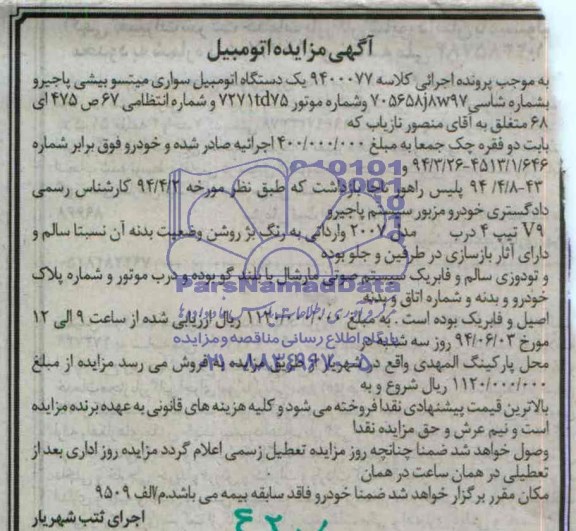 آگهی مزایده اتومبیل
به موجب پرونده اجرائی کلاسه ۹۴۰۰۰۷۷ یک دستگاه اتومبیل سواری میتسو بیشی پاجیرو
بشماره شاسی ۷۰۵۶۵۸j۸w۹۷ وشماره موتور ۷۲۷۱td۷۵ و شماره انتظامی ۶۷ ص ۴۷۵ ای
۶۸ متغلق به آقای منصور نازیاب که
بابت دو فقره چک جمعا به مبلغ ۴۰۰/۰۰۰/۰۰۰ اجرائیه صادر شده و خودرو فوق برابر شماره
۹۴/۳/۲۶-۴۵۱۳/۱/۶۴۶ و
۹۴/۴/۸-۴۳ پلیس راهور ناجا بازداشت که طبق نظر مورخه ۹۴/۴/۲ کارشناس رسمی
دادگستری خودرو مزبور سیستم پاجیرو
V۹ تیپ ۴ درب مدل ۲۰۰۷ وارداتی به رنگ بژ روشن وضعیت بدنه آن نسبتا سالم و
دارای آثار بازسازی در طرفین و جلو بوده
و تودوزی سالم و فابریک سیستم صوتی مارشال با بلند گو بوده و درب موتور و شماره پلاک
خودرو و بدنه و شماره اتاق و بدنه
اصیل و فابریک بوده است. به مبلغ ریال ارزیابی شده از ساعت ۹ الی ۱۲
مورخ ۹۴/۰۶/۰۳ روز سه شنبه در
محل پارکینگ المهدی واقع در شهریار از طریق مزایده به فروش می رسد مزایده از مبلغ
۱۱۲۰/۰۰۰/۰۰۰ ریال شروع و به
بالاترین قیمت پیشنهادی نقدا فروخته می شود و کلیه هزینه های قانونی به عهده برنده مزایده
است و نیم عرش و حق مزایده نقدا
وصول خواهد شد ضمنا چنانچه روز مزایده تعطیل رسمی اعلام گردد مزایده روز اداری بعد از
تعطیلی در همان ساعت در همان
مکان مقرر برگزار خواهد شد ضمنا خودرو فاقد سابقه بیمه می باشد.م/الف ۹۵۰۹
اجرای ثبت شهریار
ParsNamadData
پایگاه اطلاع رسانی مناقصه و مزایده
۰۲۱-۸۸۳۴۹۶۷۰-۵